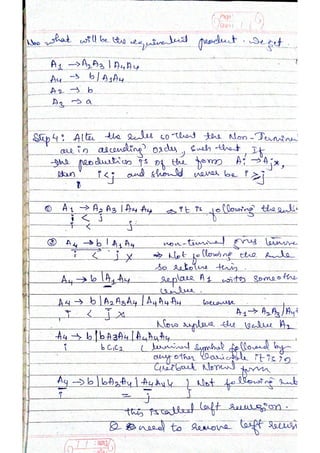 Now what will be the equivalent product. We get
A1 → A2A3 | A4A4
A4 → b | A1A4
A2 → b
A3 → a
Step 4: Alter the rules so that the Non-Terminal
are in ascending order, such that If
the production is of the form Ai → Ajx,
then i < j and should never be i ≥ j
① A1 → A2 A3 | A4 A4 → it is following the
i < j
i < j
② A4 → b | A1 A4 non-terminal gives
i < j x → Not following the rule
so resolve this.
A4 → b | A1A4 replace A1 with some other
value.
A4 → b | A2A3A4 | A4A4A4 because
i < j x A1 → A2A3 | A4
Now replace the value A2
A4 → b | bA3A4 | A4A4A4
i ( terminal symbol followed by
any other variable it is in
Greibach Normal form
A4 → b | bA3A4 | A4A4A4 } Not following
i = j
this is called left recursion.
& need to remove left